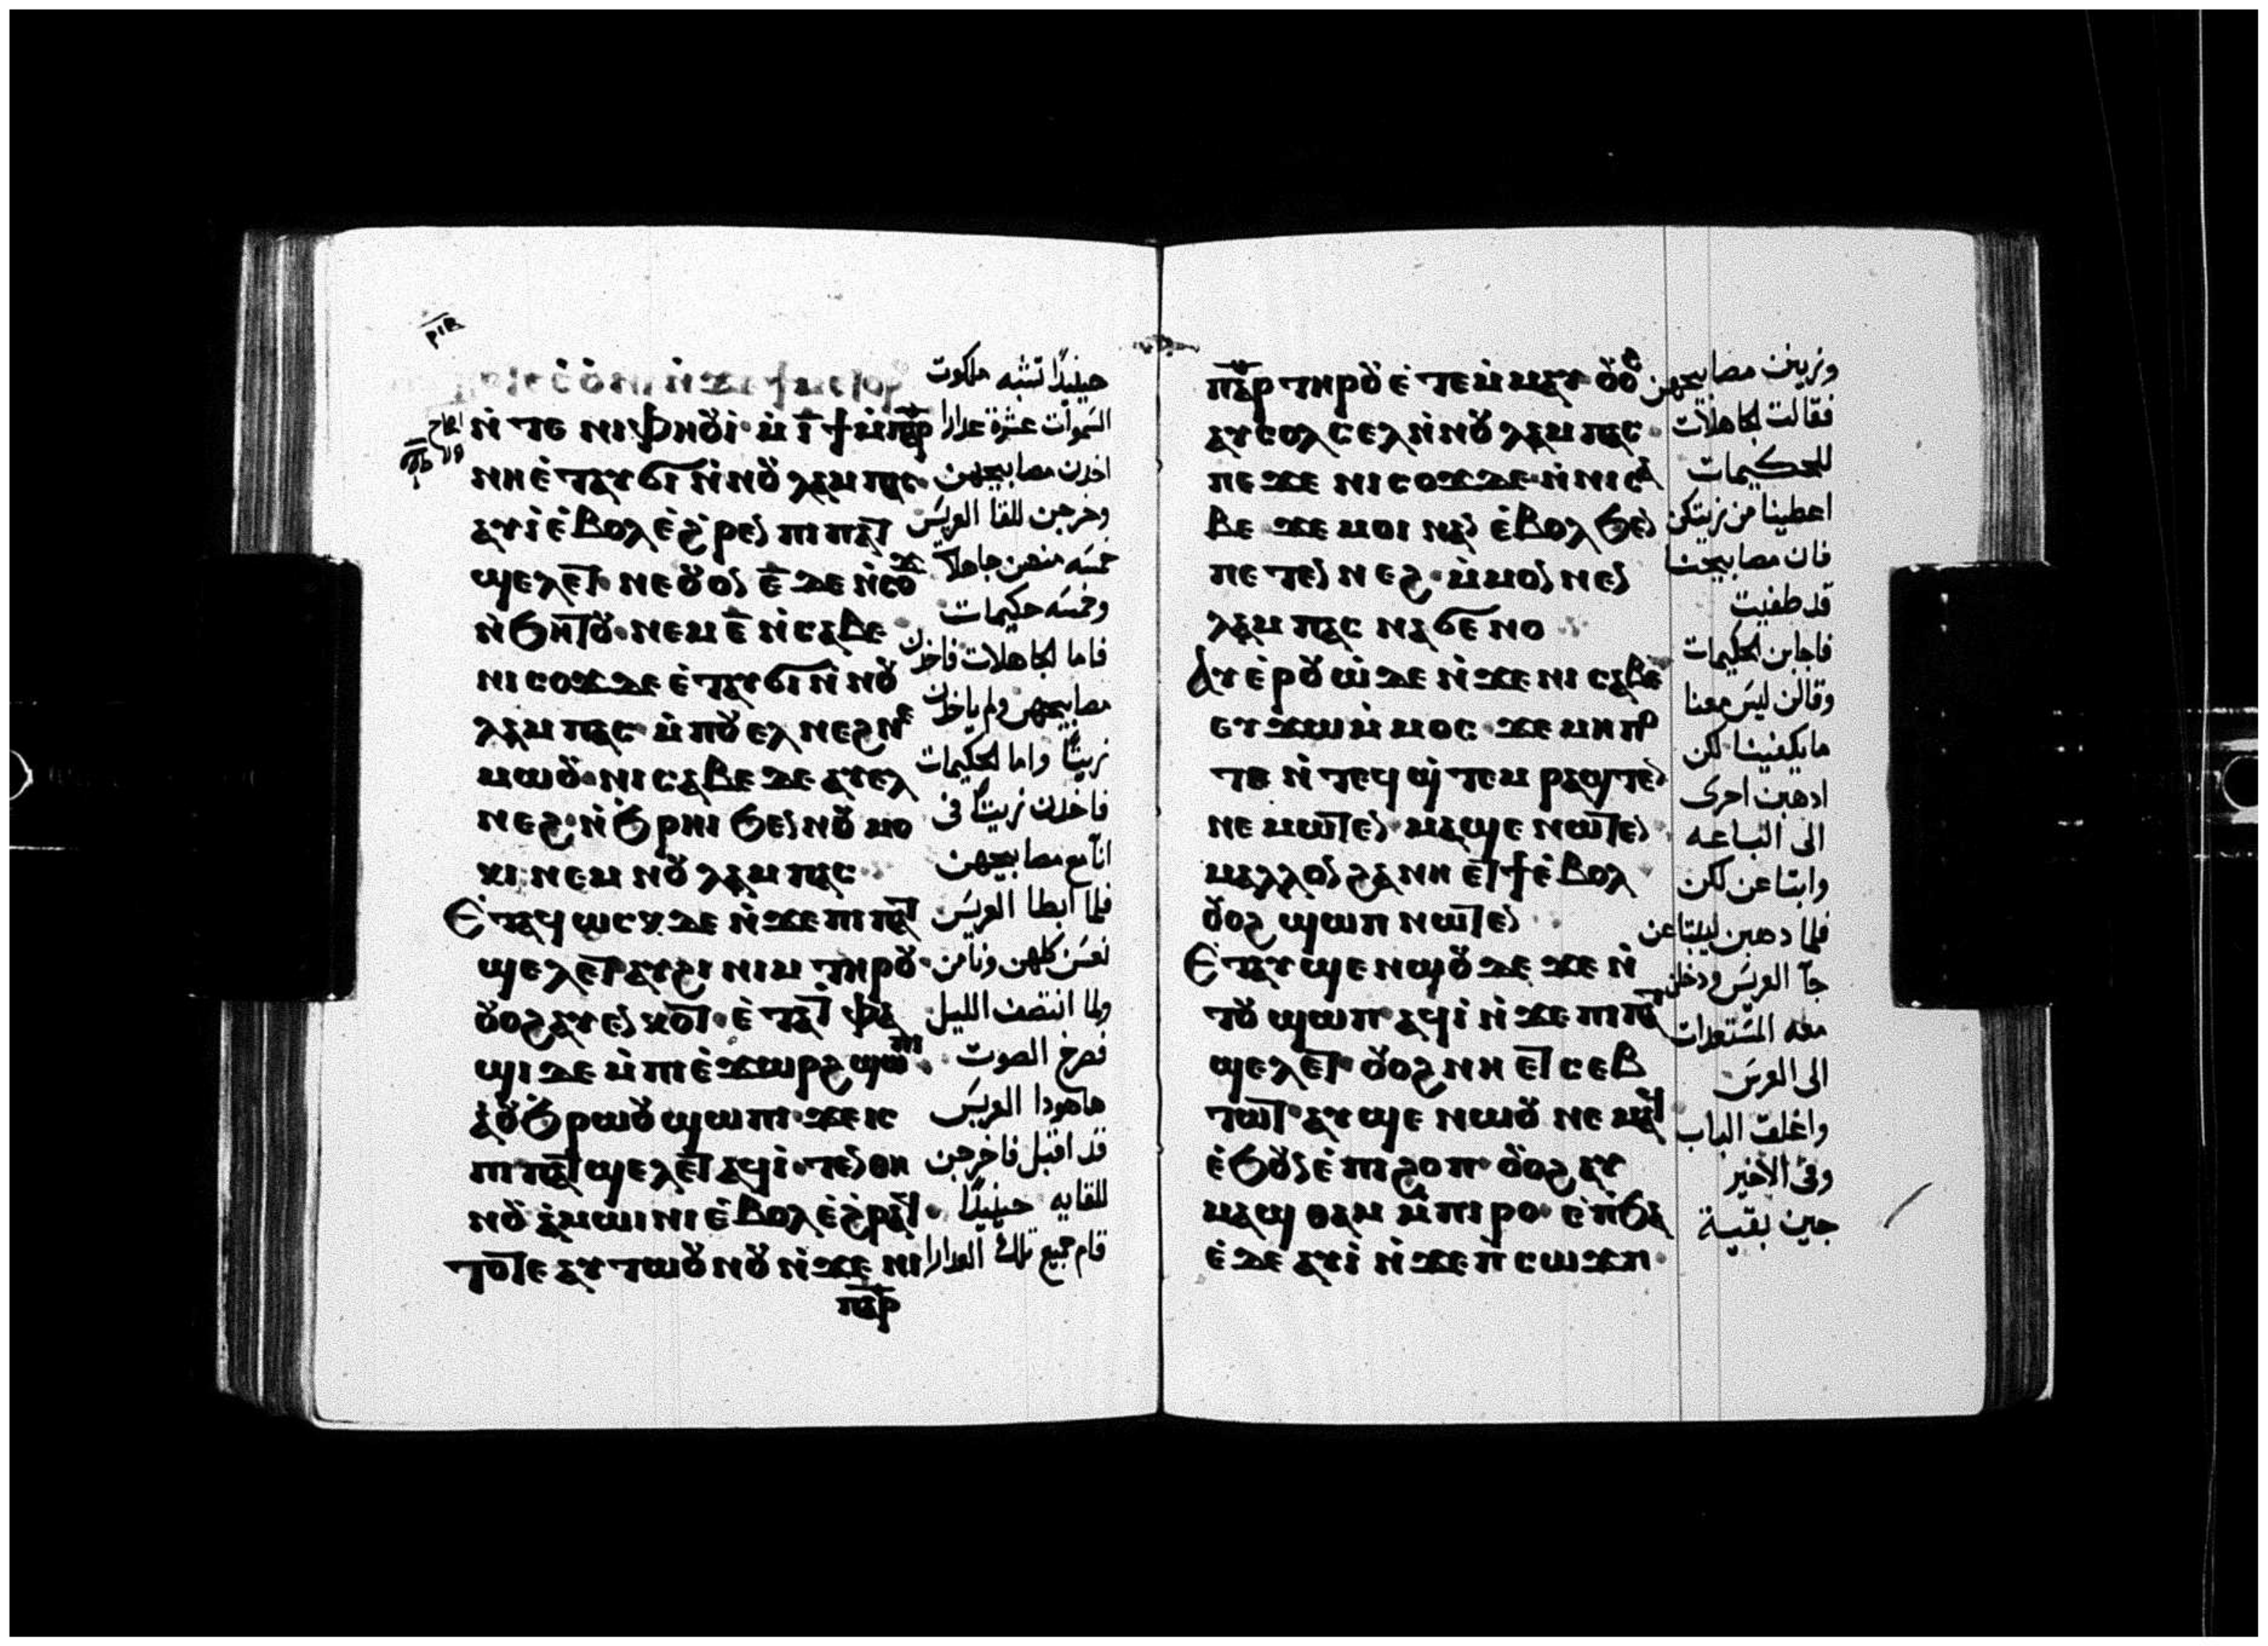 ⲣⲓⲃ
ⲛ̀ⲧⲉ ⲛⲓⲫⲏⲟⲩⲓ̀· ⲙ̀ⲓ̅ ϯⲙ̀ⲡⲁⲣ
ⲛⲏⲉ̀ⲧⲁⲩϭⲓ ⲛ̀ⲛⲟⲩ ⲗⲁⲙⲡⲁⲥ·
ⲁⲩⲓ̀ ⲉ̀ⲃⲟⲗ ⲉ̀ϩ̀ⲣⲉⲛ ⲡⲓⲡⲁⲧ
ϣⲉⲗⲉⲧ· ⲛⲉ ⲟⲩⲟⲛ ⲉ̅ ⲇⲉ ⲛ̀ⲥⲟϫ
ⲛ̀ϧⲏⲧⲟⲩ· ⲛⲉⲙ ⲉ̅ ⲛ̀ⲥⲁⲃⲉ
ⲛⲓⲥⲟϫ ⲇⲉ ⲉ̀ⲧⲁⲩϭⲓ ⲛ̀ⲛⲟⲩ
ⲗⲁⲙⲡⲁⲥ· ⲙ̀ⲡⲟⲩⲉⲗ ⲛⲉϩ ⲛⲉ
ⲙⲱⲟⲩ· ⲛⲓⲥⲁⲃⲉ ⲇⲉ ⲁⲩⲉⲗ
ⲛⲉϩ· ⲛ̀ϧ̀ⲣⲏⲓ ϧⲉⲛ ⲛⲟⲩ ⲙⲟ
ⲕⲓ· ⲛⲉⲙ ⲛⲟⲩ ⲗⲁⲙⲡⲁⲥ
Ⲉ̀ⲧⲁϥⲱⲥⲕ ⲇⲉ ⲛ̀ϫⲉ ⲡⲓⲡⲁⲧ
ϣⲉⲗⲉⲧ ⲁⲩϩⲓⲛⲓⲙ ⲧⲏⲣⲟⲩ·
ⲟⲩⲟϩ ⲁⲩⲉⲛⲕⲟⲧ· ⲉ̀ⲧⲁⲧ ⲫⲁ
ϣⲓ ⲇⲉ ⲙ̀ⲡⲓⲉ̀ϫⲱⲣϩ ϣⲱⲡⲓ
ⲁ̀ⲟⲩϧ̀ⲣⲱⲟⲩ ϣⲱⲡⲓ· ϫⲉ ⲓⲥ
ⲡⲓⲡⲁⲧϣⲉⲗⲉⲧ ⲁϥⲓ̀· ⲧⲉⲛⲑⲏ
ⲛⲟⲩ ⲁ̀ⲙⲱⲓⲛⲓ ⲉ̀ⲃⲟⲗ ⲉ̀ϩ̀ⲣⲁϥ·
ⲧⲟⲧⲉ ⲁⲩⲧⲱⲟⲩⲛⲟⲩ ⲛ̀ϫⲉ ⲛⲓ
ⲡⲁⲣ
حينيدًا تشبه ملكوت
السموات عشرة عدارا
اخدن مصابيحهن
وخرجن للقا العريس
خمسه منهن جاهلات
وخمسه حكيمات
فاما الجاهلات فاخدن
مصابيحهن ولم ياخدن
زيتًا واما الحكيمات
فاخدن زيتًا في
انآ مع مصابيحهن
فلما ابطا العريس
نعسن كلهن ونامن
ولما انتصف الليل
فصرخ الصوت
هاهودا العريس
قد اقبل فاخرجن
للقايه حينيدًا
قام جميع تلك العدارا
ⲡⲁⲣ ⲧⲏⲣⲟⲩ ⲉ̀ⲧⲉⲙ̀ⲙⲁⲩ ⲟⲩⲟϩ
ⲁⲩⲥⲟⲗⲥⲉⲗ ⲛ̀ⲛⲟⲩ ⲗⲁⲙⲡⲁⲥ·
ⲡⲉϫⲉ ⲛⲓⲥⲟϫ ⲇⲉ· ⲛ̀ⲛⲓⲥⲁ
ⲃⲉ ϫⲉ ⲙⲟⲓ ⲛⲁⲛ ⲉ̀ⲃⲟⲗ ϧⲉⲛ
ⲡⲉⲧⲉⲛ ⲛⲉϩ· ⲙ̀ⲙⲟⲛ ⲛⲉⲛ
ⲗⲁⲙⲡⲁⲥ ⲛⲁϭⲉⲛⲟ
Ⲁⲩⲉⲣⲟⲩⲱ̀ ⲇⲉ ⲛ̀ϫⲉ ⲛⲓⲥⲁⲃⲉ
ⲉⲩϫⲱ ⲙ̀ⲙⲟⲥ· ϫⲉ ⲙⲏⲡⲟ
ⲧⲉ ⲛ̀ⲧⲉϥϣ̀ⲧⲉⲙ ⲣⲁϣⲧⲉⲛ
ⲛⲉⲙⲱⲧⲉⲛ· ⲙⲁϣⲉ ⲛⲱⲧⲉⲛ·
ⲙⲁⲗⲗⲟⲛ ϩⲁ ⲛⲏ ⲉⲧϯ ⲉ̀ⲃⲟⲗ
ⲟⲩⲟϩ ϣⲱⲡ ⲛⲱⲧⲉⲛ
Ⲉ̀ⲧⲁⲩϣⲉ ⲛⲱⲟⲩ ⲇⲉ ϫⲉ ⲛ̀
ⲧⲟⲩϣⲱⲡ· ⲁϥⲓ̀ ⲛ̀ϫⲉ ⲡⲓⲡⲁⲧ
ϣⲉⲗⲉⲧ· ⲟⲩⲟϩ ⲛⲏ ⲉⲧⲥⲉⲃ
ⲧⲱⲧ· ⲁⲩϣⲉ ⲛⲱⲟⲩ ⲛⲉⲙⲁϥ
ⲉ̀ϧⲟⲩⲛ ⲉ̀ⲡⲓϩⲟⲡ· ⲟⲩⲟϩ ⲁⲩ
ⲙⲁϣⲑⲁⲙ ⲙ̀ⲡⲓⲣⲟ· ⲉ̀ⲡ̀ϧⲁ
ⲉ̀ ⲇⲉ ⲁⲩⲓ̀ ⲛ̀ϫⲉ ⲡ̀ⲥⲱϫⲡ·
وزينن مصابيحهن
فقالت الجاهلات
للحكيمات
اعطينا من زيتكن
فان مصابيحنا
قد طفيت
فاجابن الحكيمات
وقالن ليس معنا
مايكفينا لكن
ادهبن احرى
الى الباعه
وابتاعن لكن
فلما دهبن ليبتاعن
جآ العريس ودخلن
معه المستعدات
الى العرس
واغلقت الباب
وفى الاخير
جين بقية